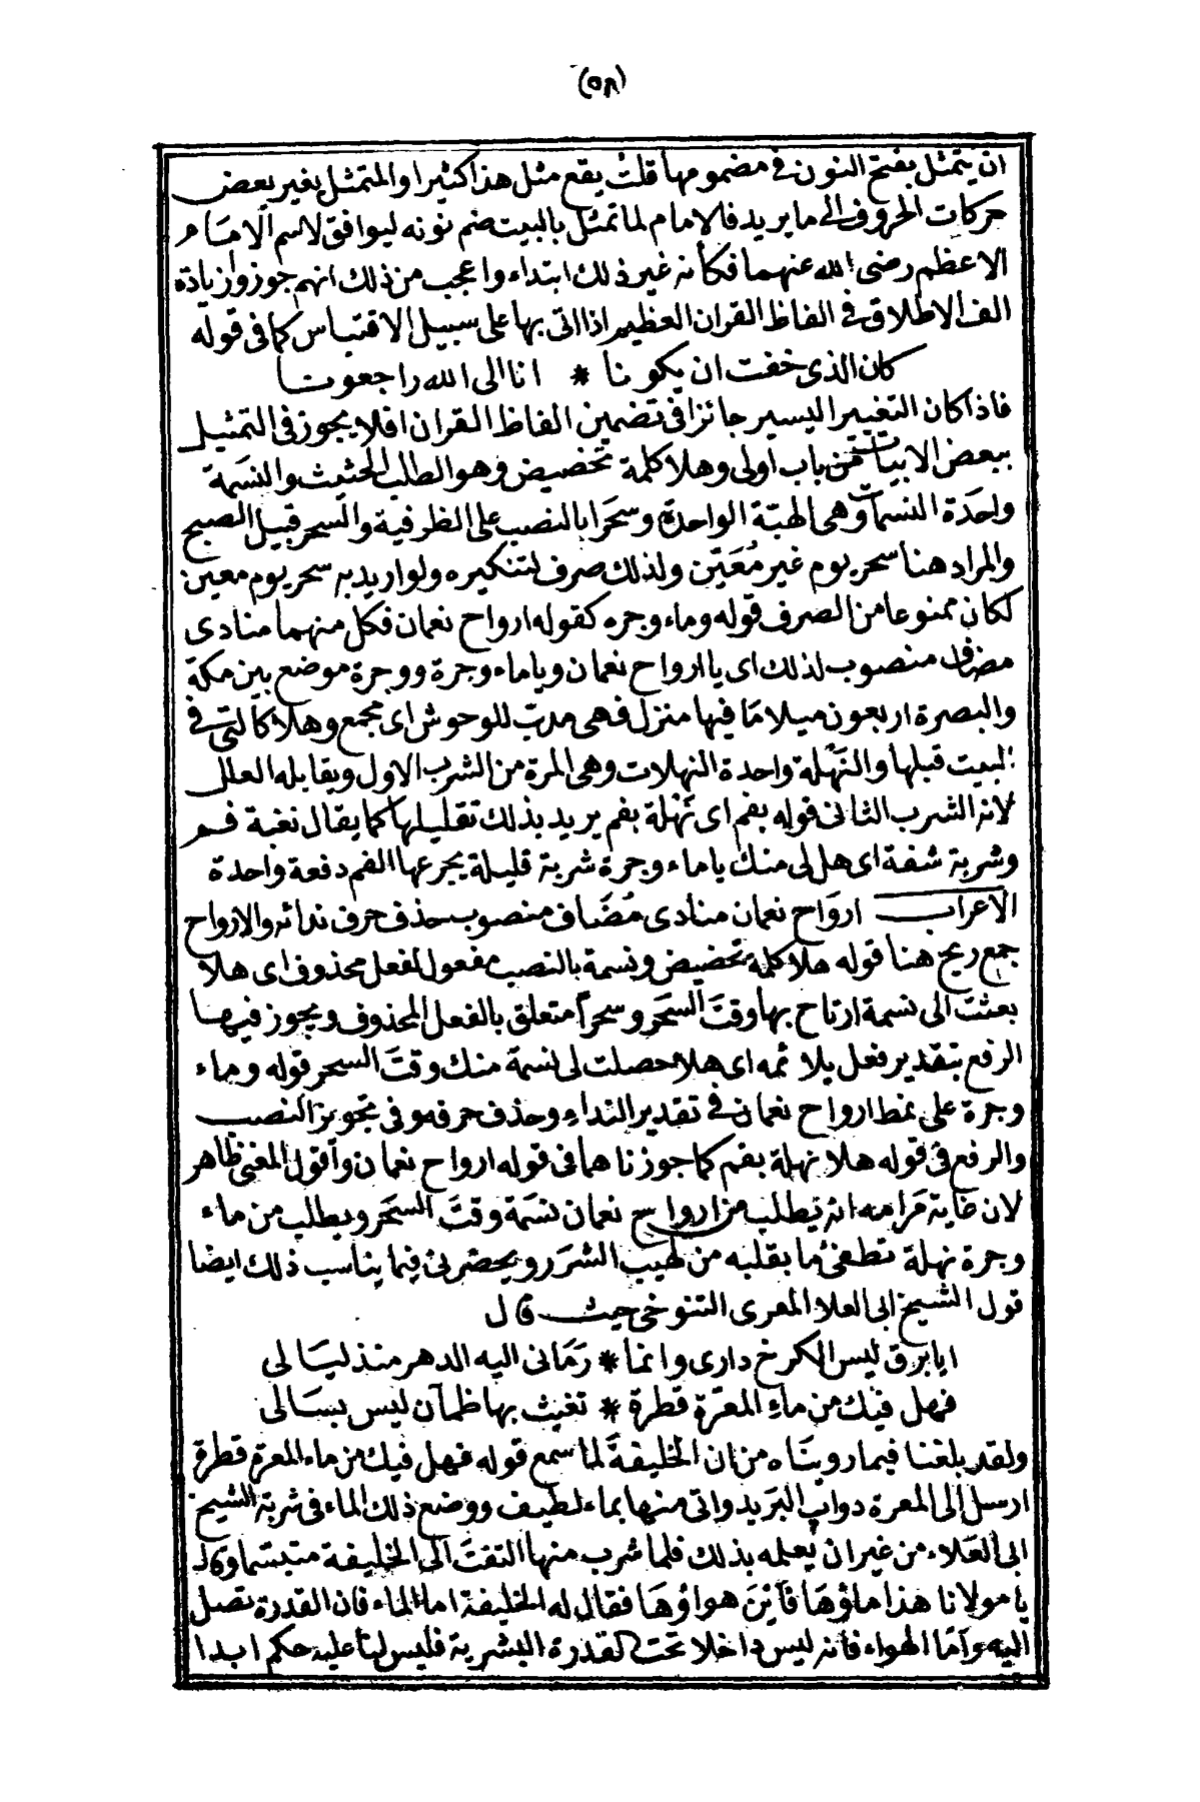 (٥٨)
ان يتمثل بفتح النون في مضمومها قلت يقع مثل هذا كثيرا والمتمثل يغير بعض
حركات الحروف الى ما يريد فالامام لما تمثل بالبيت ضم نونه ليوافق لاسم الامام
الاعظم رضى الله عنهما فكأنه غير ذلك ابتداء واعجب من ذلك انهم جوزوا زيادة
الف الاطلاق في الفاظ القران العظيم اذا اتى بها على سبيل الاقتباس كما فى قوله
كان الذى خفت ان يكونا * انا الى الله راجعونا
فاذا كان التغيير اليسير جائزا فى تضمين الفاظ القران افلا يجوز فى التمثيل
ببعض الابيات من باب اولى وهلا كلمة تحضيض وهو الطلب الحثيث والنسَمة
واحدَة النسمات وهى الهبّة الواحدة وسَحَرا بالنصب على الظرفية والسحر قبيل الصبح
والمراد هنا سحر يوم غير مُعَيّن ولذلك صرف لتنكيره ولو اريد به سحر يوم معين
لكان ممنوعا من الصرف قوله وماء وجره كقوله ارواح نعمان فكل منهما منادى
مضاف منصوب لذلك اى يا ارواح نعمان ويا ماء وجرة ووجرة موضع بين مكة
والبصرة اربعون ميلا مَا فيها منزل فهى مربّ للوحوش اى مجمع وهلا كالتى في
البيت قبلها والنَهْلة واحدة النهلات وهى المرة من الشرب الاول ويقابله العلل
لانه الشرب الثانى قوله بفم اى نَهْلة بفم يريد بذلك تقليلها كما يقال نغبة فم
وشربة شفة اى هل لى منك يا ماء وجرة شربة قليلة يجرعها الفم دفعة واحدة
الاعراب ارواح نعمان منادى مُضَاف منصوب حذف حرف ندائه والارواح
جمع ريح هنا قوله هلا كلمة تحضيض ونسمة بالنصب مفعول لفعل محذوف اى هلا
بعثتَ الى نسمة ارتاح بها وقتَ السَحَر وسحراً متعلق بالفعل المحذوف ويجوز فيها
الرفع بتقدير فعل يلائمه اى هلا حصلت لى نسمة منك وقتَ السحر قوله وماء
وجرة على نمط ارواح نعمان في تقدير النداء وحذف حرفه وفى تجويز النصب
والرفع فى قوله هلا نهلة بفم كما جوزناهما فى قوله ارواح نعمان وأقول المعنى ظاهر
لان غاية مَرامه انه يطلب من ارواح نعمان نسَمة وقتَ السَحَر ويطلب من ماء
وجرة نهلة تطفئ ما بقلبه من لهيب الشرَر ويحضرنى فيما يناسب ذلك ايضا
قول الشيخ ابى العلا المعرى التنوخى حيث قال
ايا برق ليس الكرخ دارى وانما * رَمَانى اليه الدهر منذ ليَالى
فهل فيك من ماءِ المعَرّة قطرة * تغيث بها ظمآن ليس بسَالى
ولقد بلغنا فيما روينَاه من ان الخليفةَ لما سمع قوله فهل فيك من ماء المعرة قطرة
ارسل الى المعرة دوابّ البَريد واتى منها بماء لطيف ووضع ذلك الماء فى شربة الشيخ
ابى العَلاء من غير ان يُعلمه بذلك فلما شرب منها التفتَ الى الخليفة متبسّما وقال
يا مولانا هذا ماؤهَا فأيْنَ هواؤهَا فقال له الخليفة اما الماء فان القدرة تصل
اليه وأمّا الهواء فانه ليس داخلا تحت القدرة البشرية فليس لنا عليه حكم ابدا